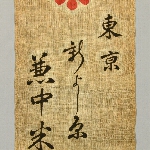 東京
新よし原
兼中米